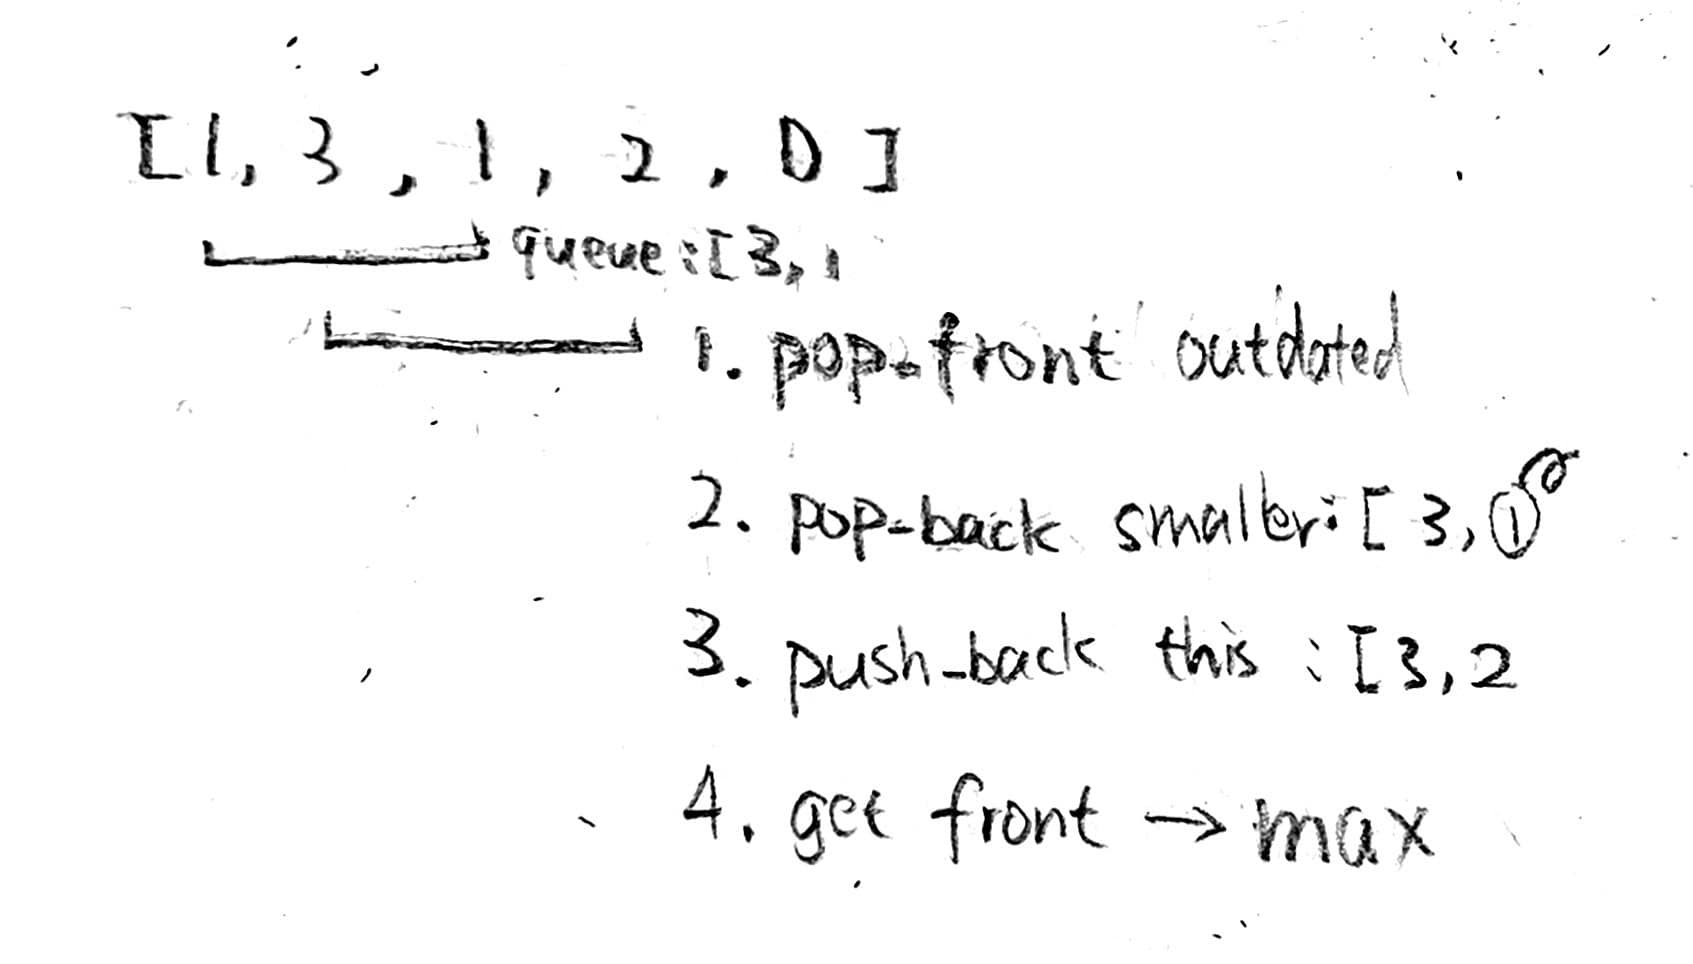 [1, 3, 1, 2, 0]
queue:[3, 1
1. pop-front outdated
2. pop-back smaller:[3, 1
3. push-back this:[3, 2
4. get front → max